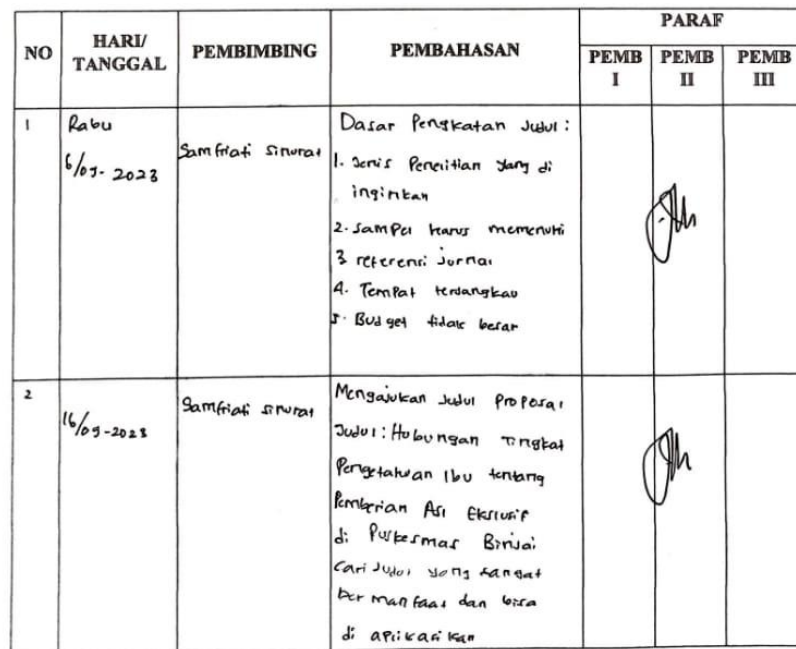 NO
HARI/
TANGGAL
PEMBIMBING
PEMBAHASAN
PARAF
PEMB
I
PEMB
II
PEMB
III
1
Rabu
6/09-2023
Samfriati Sinurat
Dasar Pengkatan Judul :
1. Jenis Penelitian yang di
inginkan
2. Sampel harus memenuhi
3 referensi Jurnal
4. Tempat terjangkau
5. Budget tidak besar
2
16/09-2023
Samfriati Sinurat
Mengajukan Judul Proposal
Judul : Hubungan Tingkat
Pengetahuan Ibu tentang
Pemberian Asi Ekslusif
di Puskesmas Binjai
Cari Judul yang sangat
bermanfaat dan bisa
di aplikasikan